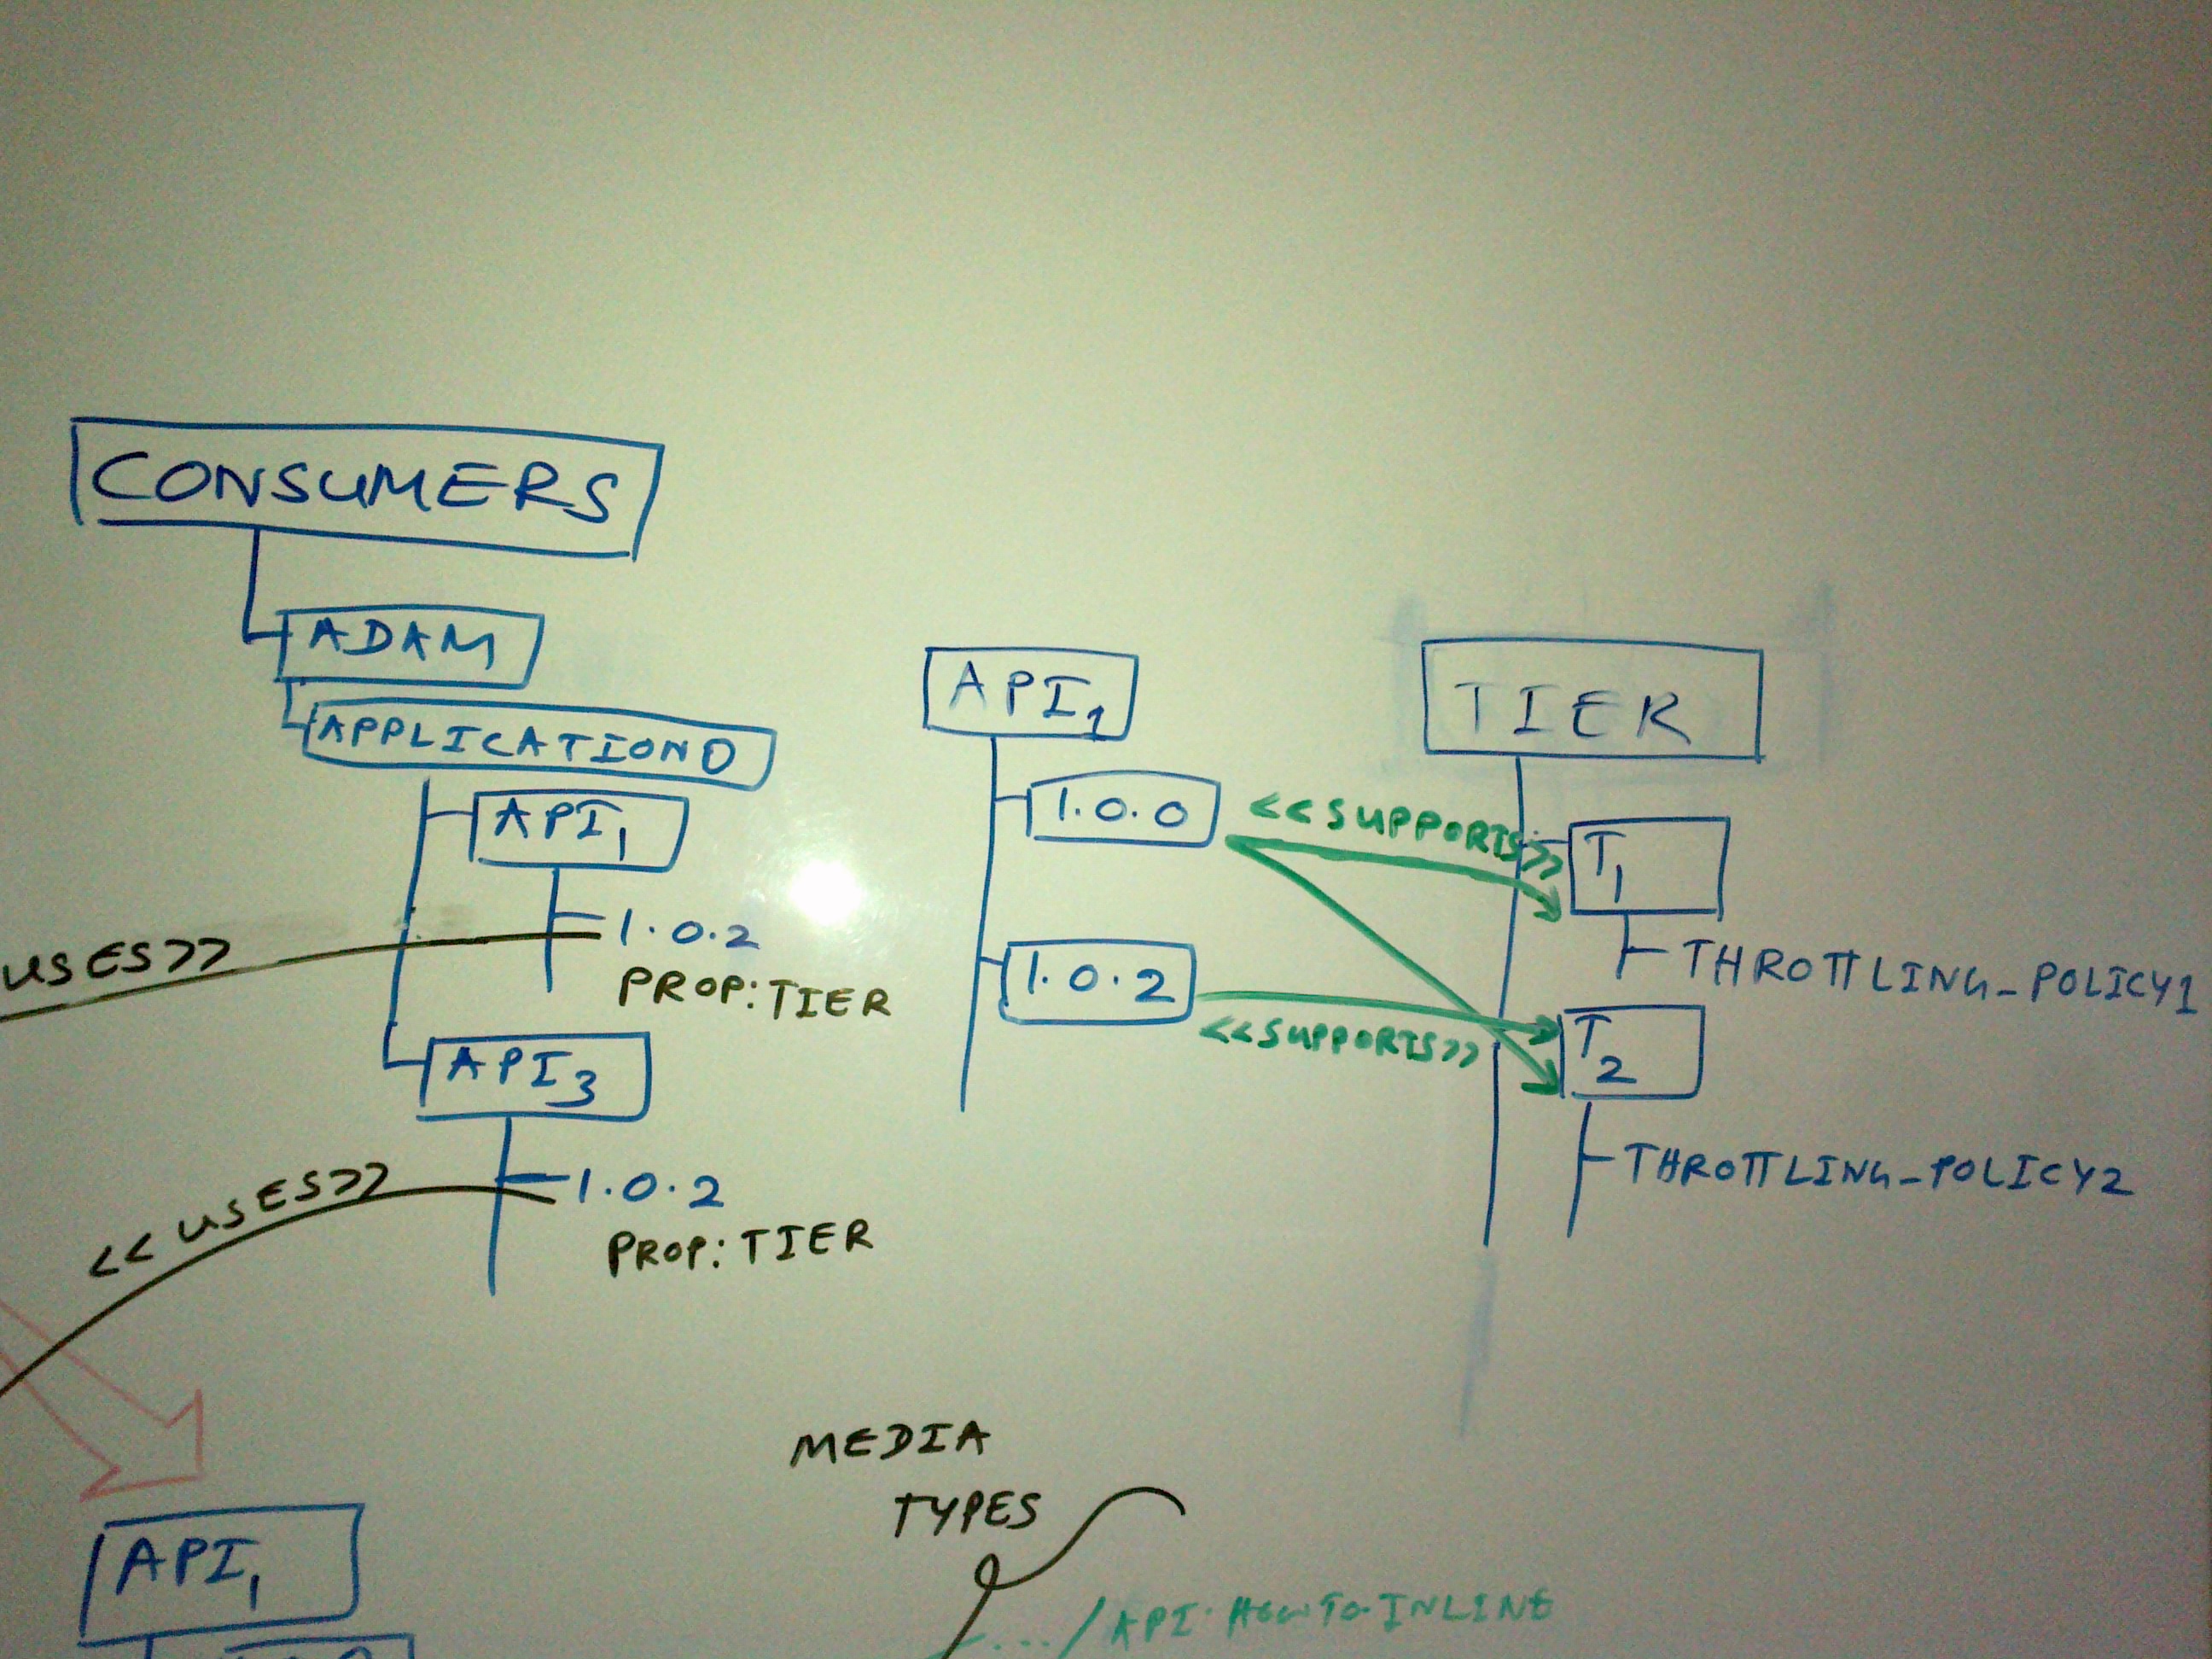 CONSUMERS
ADAM
APPLICATION0
API1
1.0.2
PROP:TIER
USES>>
API3
1.0.2
PROP:TIER
<<USES>>
API1
1.0.0
<<SUPPORTS>>
1.0.2
<<SUPPORTS>>
TIER
T1
THROTTLING_POLICY1
T2
THROTTLING_POLICY2
MEDIA
TYPES
API1
.../API-HOWTO-INLINE